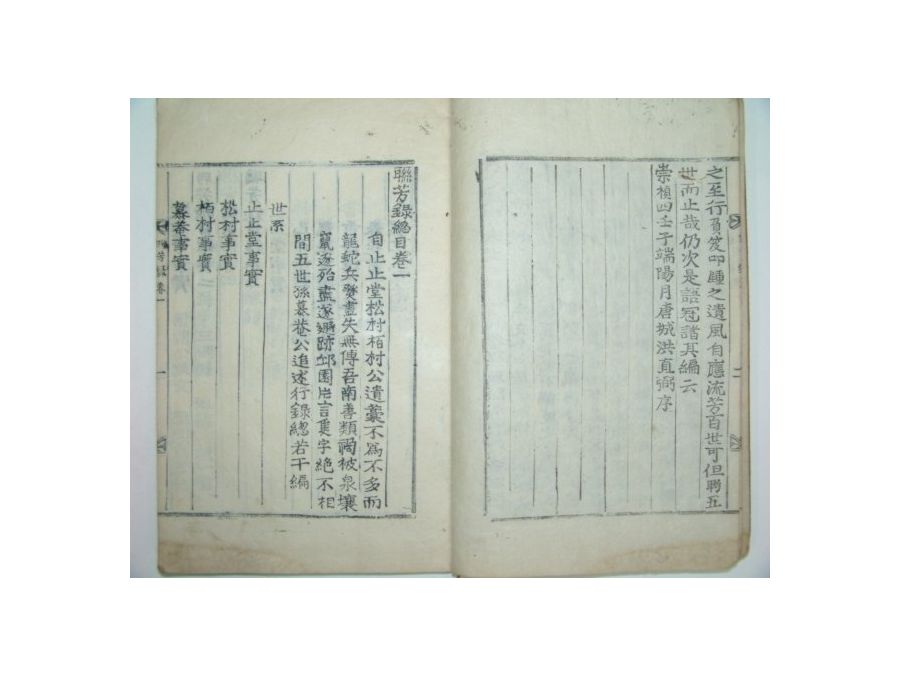 之至行負笈叩鍾之遺風自應流芳百世可但聯五
世而止哉仍次是語冠諸其編云
崇禎四壬子端陽月唐城洪直弼序
二
聯芳錄總目卷一
自止止堂松村栢村公遺藁不爲不多而
龍蛇兵燹盡失無傳吾南善類禍被泉壤
竄逐殆盡遂遯跡邱園片言隻字絶不相
間五世孫慕菴公追述行錄總若干編
世系
止止堂事實
松村事實
栢村事實
慕菴事實
聯芳錄卷一
一